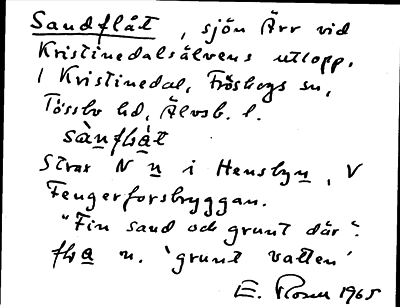 Sandflåt, sjön Ärr vid
Kristinedalsälvens utlopp,
i Kristinedal, Fröskogs sn,
Tössbo hd, Älvsb. l.
sànflat
Strax N n i Hensbyn, V
Fengerforsbryggan.
"Fin sand och grunt där".
fla n. 'grunt vatten'
E. Rosell 1965